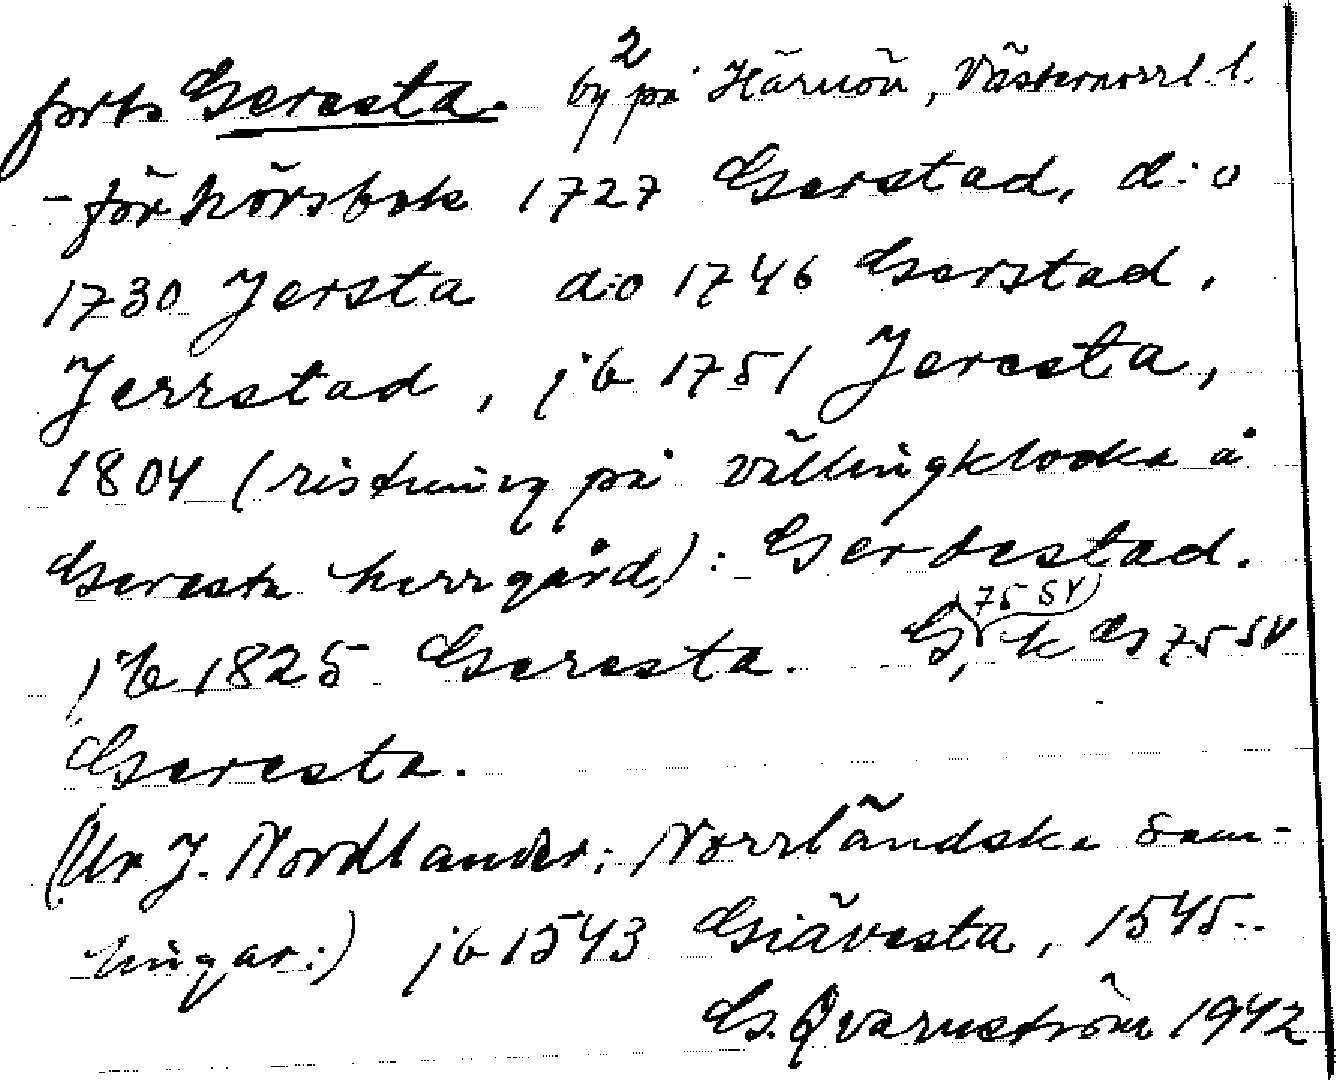 2
forts Geresta. by på Härnön, Västernorrl. l.
- förhörsbok 1727 Gerstad, d:o
1730 Jersta d:o 1746 Gerstad,
Jerrstad, jb 1751 Jeresta,
1804 (ristning på vällingklocka å
Geresta herrgård): Gerdestad.
jb 1825 Geresta. G, k Gs 75 SV
75 SV
Geresta.
(Ur J. Nordlander: Norrländska Sam-
lingar:) jb 1543 Giävesta, 1545..
G. Qvarnström 1942